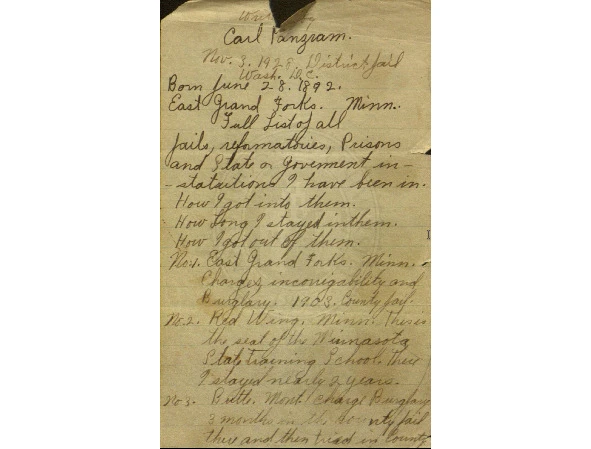 Carl Panzram.
Nov. 3. 1928. District Jail
Wash. D.C.
Born June 28. 1892.
East Grand Forks. Minn.
Full List of all
Jails, reformatories, Prisons
and State or Goverment in-
-stataitions I have been in.
How I got into them.
How Long I stayed in them.
How I got out of them.
No.1. East Grand Forks. Minn.
Charge, incorrigability and
Burglary. 1903. County Jail.
No.2. Red Wing, Minn. This is
the seat of the Minnasota
State Training School. There
I stayed nearly 2 years.
No 3. Butte. Mont. Charge Burglary
3 months in the County Jail
there and then tried in County